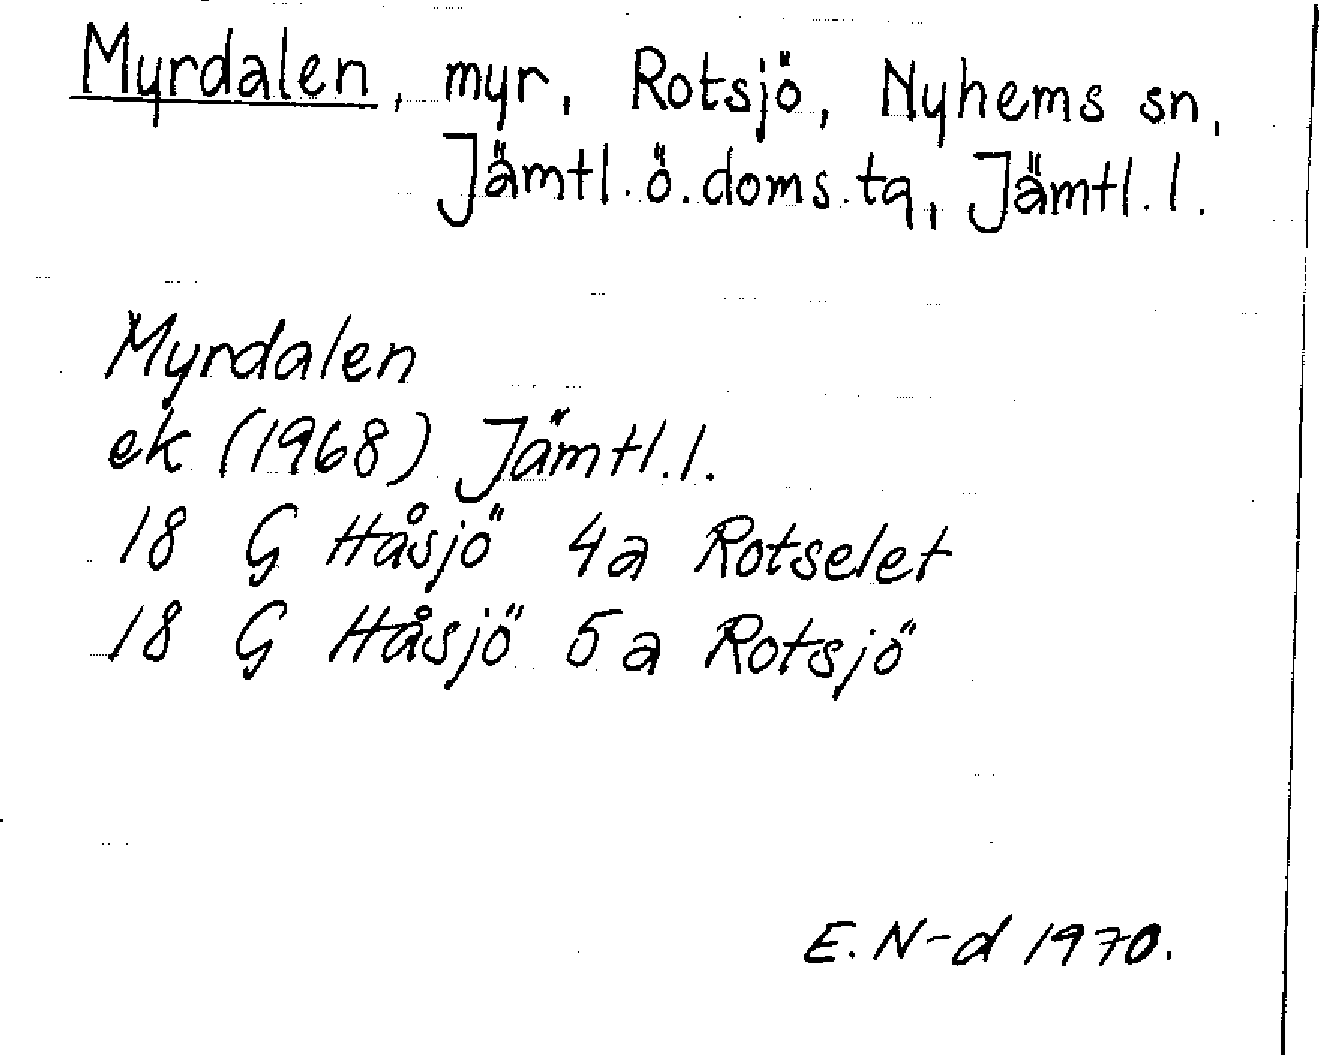 Myrdalen, myr, Rotsjö, Nyhems sn,
Jämtl. ö. doms. tg, Jämtl. l.
Myrdalen
ek (1968) Jämtl. l.
18 G Håsjö 4a Rotselet
18 G Håsjö 5a Rotsjö
E. N-d 1970.